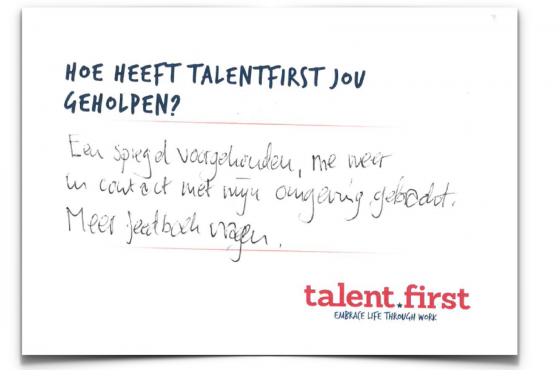 HOE HEEFT TALENTFIRST JOU
GEHOLPEN?
Een spiegel voorgehouden, me weer
in contact met mijn omgeving gebracht.
Meer feedback vragen.
talent.first
EMBRACE LIFE THROUGH WORK